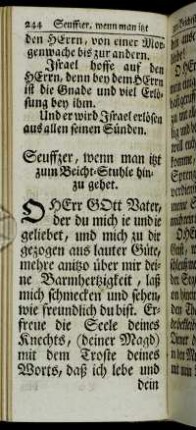 244 Seuffzer, wenn man itzt
den HErrn, von einer Mor-
genwache bis zur andern.
Israel hoffe auf den
HErrn, denn bey dem HErrn
ist die Gnade und viel Erlö-
sung bey ihm.
Und er wird Israel erlösen
aus allen seinen Sünden.
Seuffzer, wenn man itzt
zum Beicht-Stuhle hin-
zu gehet.
O HErr GOtt Vater,
der du mich ie und ie
geliebet, und mich zu dir
gezogen aus lauter Güte,
mehre anitzo über mir dei-
ne Barmhertzigkeit, laß
mich schmecken und sehen,
wie freundlich du bist. Er-
freue die Seele deines
Knechts, (deiner Magd)
mit dem Troste deines
Worts, daß ich lebe und
dein